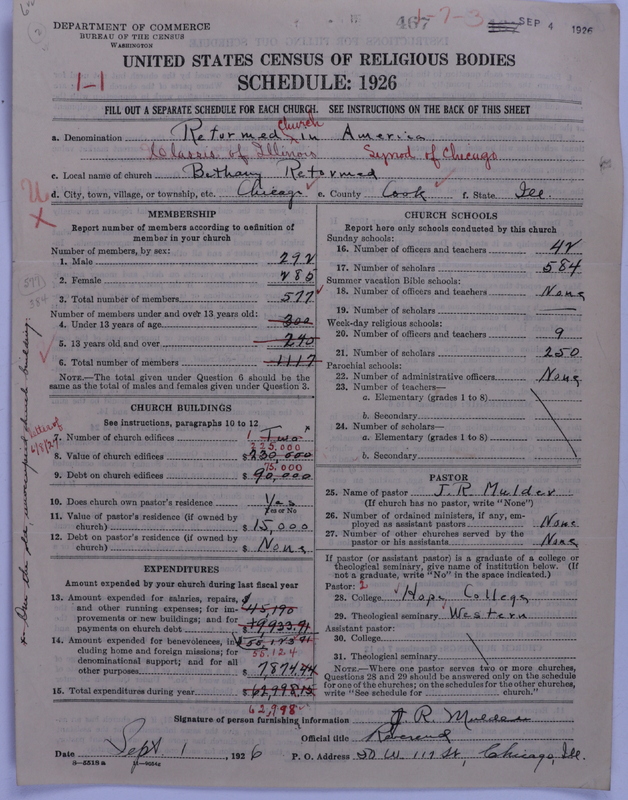 467 1-7-3 SEP 4 1926
DEPARTMENT OF COMMERCE
BUREAU OF THE CENSUS
WASHINGTON
UNITED STATES CENSUS OF RELIGIOUS BODIES
1-1 SCHEDULE: 1926
FILL OUT A SEPARATE SCHEDULE FOR EACH CHURCH. SEE INSTRUCTIONS ON THE BACK OF THIS SHEET
a. Denomination Reformed Church in America
Classis of Illinois Synod of Chicago
c. Local name of church Bethany Reformed
d. City, town, village, or township, etc. Chicago e. County Cook f. State Ill.
MEMBERSHIP
Report number of members according to definition of
member in your church
Number of members, by sex:
1. Male 292
2. Female 285
3. Total number of members 577
Number of members under and over 13 years old:
4. Under 13 years of age 300
5. 13 years old and over 240
6. Total number of members 1117
NOTE.—The total given under Question 6 should be the
same as the total of males and females given under Question 3.
CHURCH BUILDINGS
See instructions, paragraphs 10 to 12
7. Number of church edifices 1 Two x
225,000
8. Value of church edifices $ 230,000
75,000
9. Debt on church edifices $ 90,000
10. Does church own pastor's residence Yes
Yes or No
11. Value of pastor's residence (if owned by
church) $ 15,000
12. Debt on pastor's residence (if owned by
church) $ None
EXPENDITURES
Amount expended by your church during last fiscal year
13. Amount expended for salaries, repairs,
and other running expenses; for im-
provements or new buildings; and for
payments on church debt
14. Amount expended for benevolences, in-
cluding home and foreign missions; for
denominational support; and for all
other purposes $ 7874.44
55,124
15. Total expenditures during year $ 62,998.15
62,998
CHURCH SCHOOLS
Report here only schools conducted by this church
Sunday schools:
16. Number of officers and teachers 42
17. Number of scholars 584
Summer vacation Bible schools:
18. Number of officers and teachers None
19. Number of scholars
Week-day religious schools:
20. Number of officers and teachers 9
21. Number of scholars 250
Parochial schools:
22. Number of administrative officers None
23. Number of teachers—
a. Elementary (grades 1 to 8)
b. Secondary
24. Number of scholars—
a. Elementary (grades 1 to 8)
b. Secondary
PASTOR
25. Name of pastor J. R. Mulder
(If church has no pastor, write "None")
26. Number of ordained ministers, if any, em-
ployed as assistant pastors None
27. Number of other churches served by the
pastor or his assistants None
If pastor (or assistant pastor) is a graduate of a college or
theological seminary, give name of institution below. (If
not a graduate, write "No" in the space indicated.)
Pastor: 2
28. College Hope College
29. Theological seminary Western
Assistant pastor:
30. College
31. Theological seminary
NOTE.—Where one pastor serves two or more churches,
Questions 28 and 29 should be answered only on the schedule
for one of the churches; on the schedules for the other churches,
write "See schedule for church."
Signature of person furnishing information J. R. Mulder
Official title Reverend
Date Sept. 1, 1926 P. O. Address 50 W. 111 St., Chicago, Ill.
S—5518a